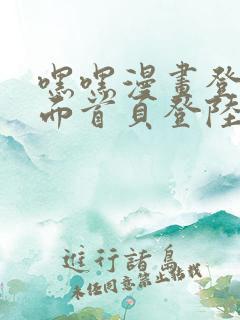 嘿嘿漫畫登
而首頁登陸
進行諸島
未经同意禁止转载